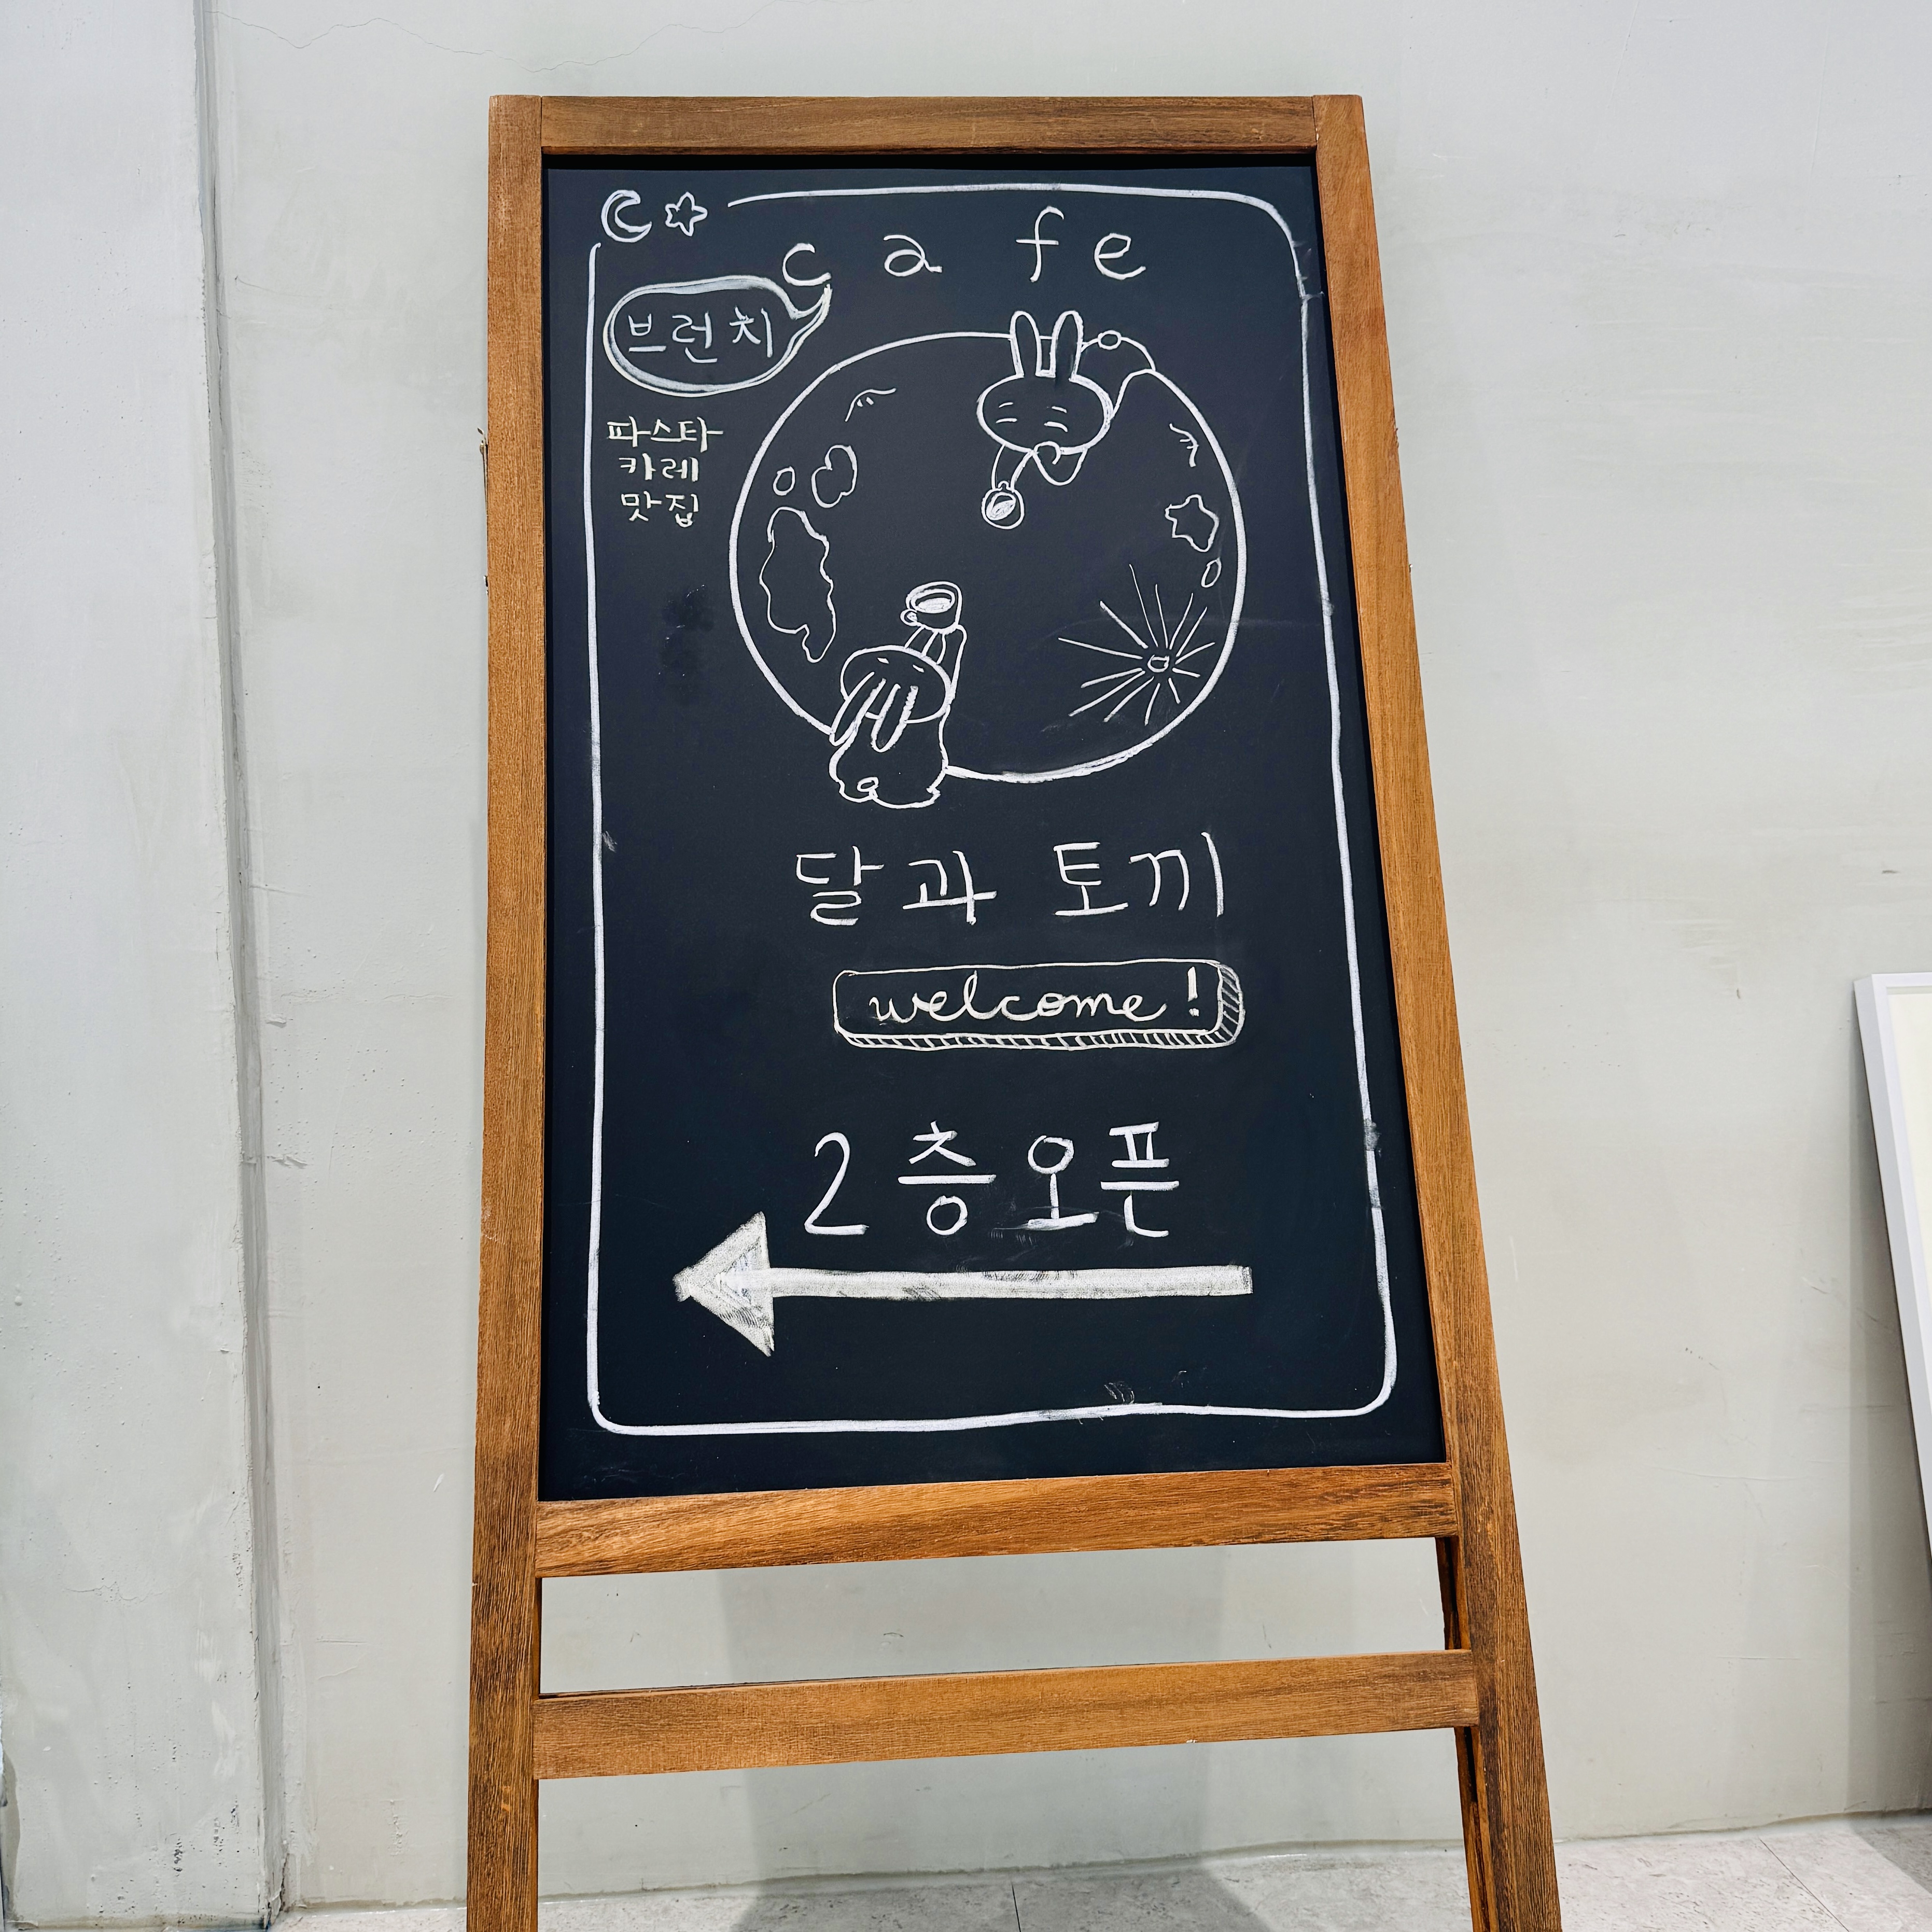 cafe
브런치
파스타
카레
맛집
달과 토끼
welcome!
2층오픈